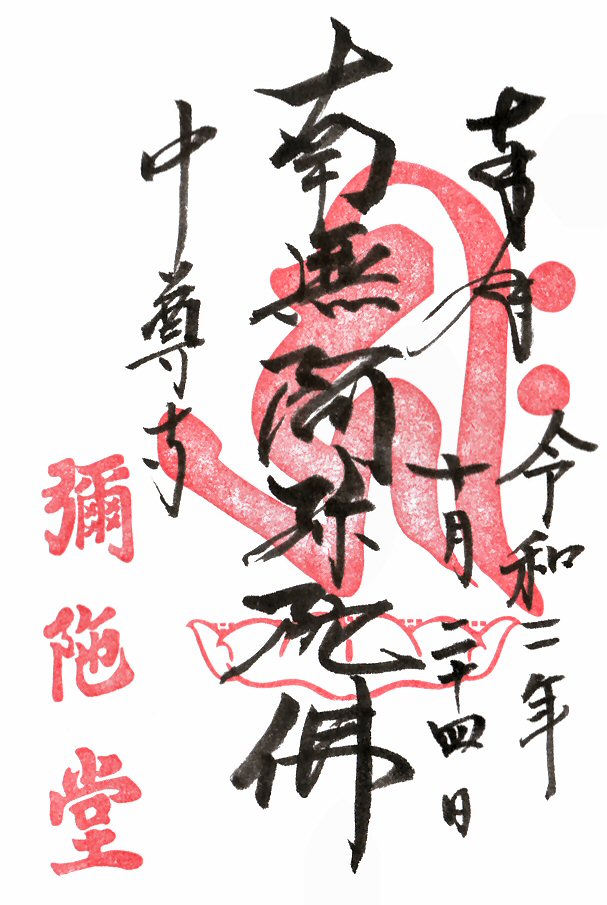 奉拝
令和二年
十月二十四日
南無阿弥陀佛
中尊寺
彌陀堂